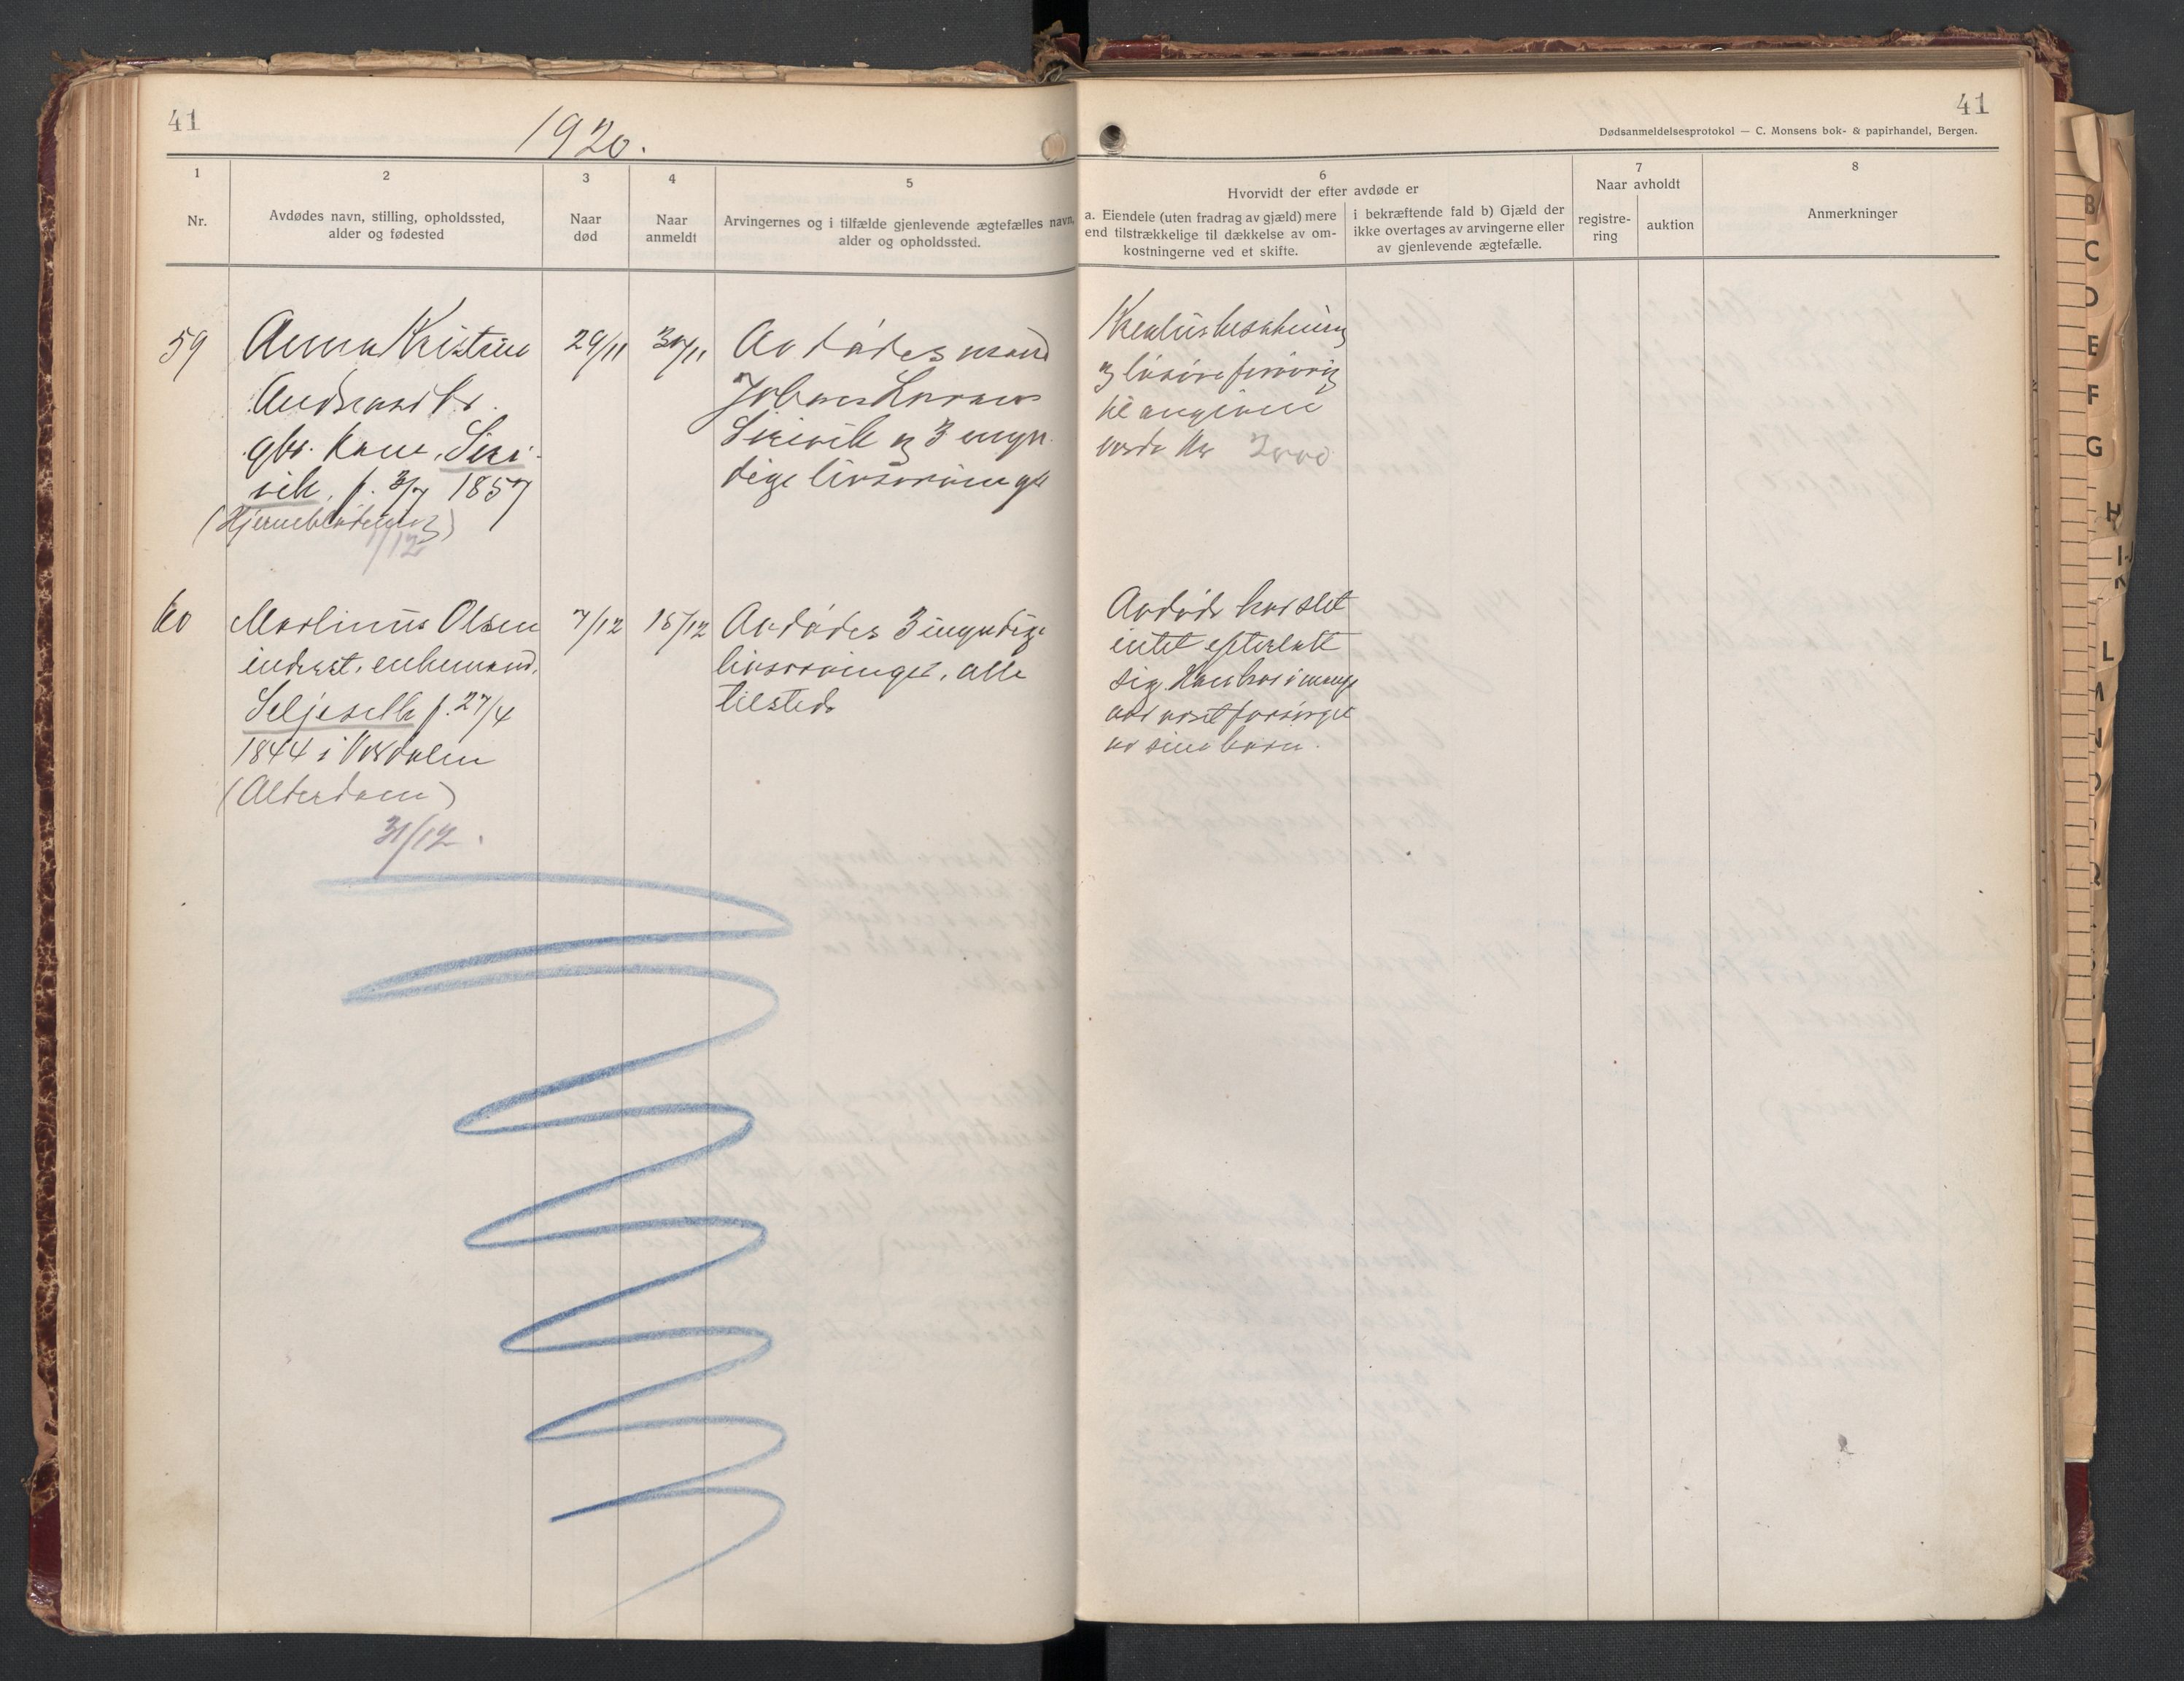 41
1920.
1
2
3
4
5
Nr.
Avdødes navn, stilling, opholdssted,
alder og fødested
Naar
død
Naar
anmeldt
Arvingernes og i tilfælde gjenlevende ægtefælles navn,
alder og opholdssted.
59
Anna Kristine
Andreasdtr.
gbr. kone, Sizi-
vik, f. 3/7 1857
(Hjerneblødning)
1/12
29/11
30/11
Avdødes mand
Johan
og 3 myn
dige livsarvinger
60
Martinus Olsen
inderst, enkemand,
Seljeseth f. 27/4
1844 i Værdalen
(Alderdom)
31/12.
7/12
15/12
Avdødes 3 myndige
livsarvinger, alle
tilstede
41
Dødsanmeldelsesprotokol — C. Monsens bok- & papirhandel, Bergen.
6
Hvorvidt der efter avdøde er
a. Eiendele (uten fradrag av gjæld) mere
end tilstrækkelige til dækkelse av om-
kostningerne ved et skifte.
i bekræftende fald b) Gjæld der
ikke overtages av arvingerne eller
av gjenlevende ægtefælle.
7
Naar avholdt
registre-
ring
auktion
8
Anmerkninger
Kreatursbesætning
og løsøre forøvrig
til angiven
værdi kr 3000
Avdøde har slet
intet efterlatt
sig. Han har i mange
aar været forsørget
av sine barn.
B
C
D
E
F
G
H
I-J
K
L
M
N
O